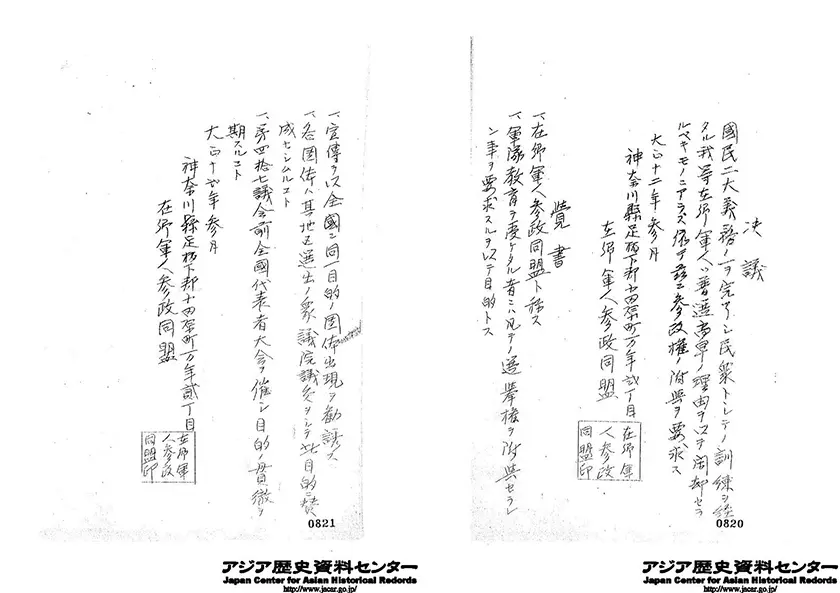 決議
國民二大義務ノ一ヲ完了シ民衆トシテノ訓練ヲ経
タル我等在郷軍人ハ普選尚早ノ理由ヲ以テ閑却セラ
ルベキモノニアラズ依テ茲ニ参政権ノ附與ヲ要求ス
大正十二年参月
神奈川縣足柄下郡小田原町万年弐丁目
在郷軍人参政同盟
在郷軍
人参政
同盟印
覺書
一、在郷軍人参政同盟ト称ス
一、軍隊教育ヲ受ケタル者ニハ凡テノ選挙権ヲ附與セラレ
ン事ヲ要求スルヲ以テ目的トス
0820
一、宣傳ヲ以全國ニ同一目的ノ團体出現ヲ勧誘ス
一、各團体ハ其地区選出ノ衆議院議員ヲシテ此目的ニ賛
成セシムルコト
一、第四拾七議会前全國代表者大会ヲ催シ目的ノ貫徹ヲ
期スルコト
大正十弐年参月
神奈川縣足柄下郡小田原町万年貳丁目
在郷軍人参政同盟
在郷軍
人参政
同盟印
0821
アジア歴史資料センター
Japan Center for Asian Historical Records
http://www.jacar.go.jp/
アジア歴史資料センター
Japan Center for Asian Historical Records
http://www.jacar.go.jp/